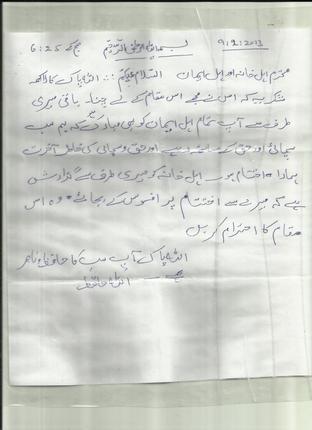 9:2:2013 بسم اللہ الرحمٰن الرحیم صبح کے 6:25
محترم اہل خانہ اور اہل ایمان السلام علیکم ... اللہ پاک کا لاکھ
شکر ہے کہ اس نے مجھے اس مقام کے لیے چنا۔ باقی میری
طرف سے آپ تمام اہل ایمان کو بھی مبارک ہو کہ ہم سب
سچائی اور حق کے ساتھ رہے اور حق و سچائی کی خاطر آخرت
ہمارا اختتام ہو۔ اہل خانہ کو میری طرف سے گزارش
ہے کہ میرے سے اختتام پر افسوس کے بجائے وہ اس
مقام کا احترام کریں
اللہ پاک آپ سب کا حافظ و ناصر
ہے۔ اللہ حافظ